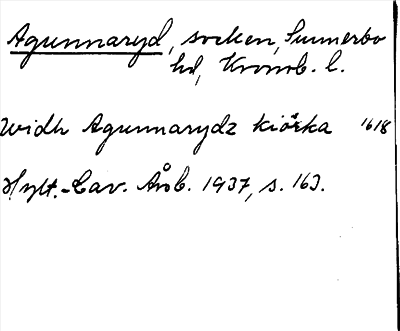 Agunnaryd, socken, Sunnerbo
hd, Kronob. l.
widh Agunnarydz kiörka 1618
Hylt.-Cav. Årsb. 1937, s. 163.